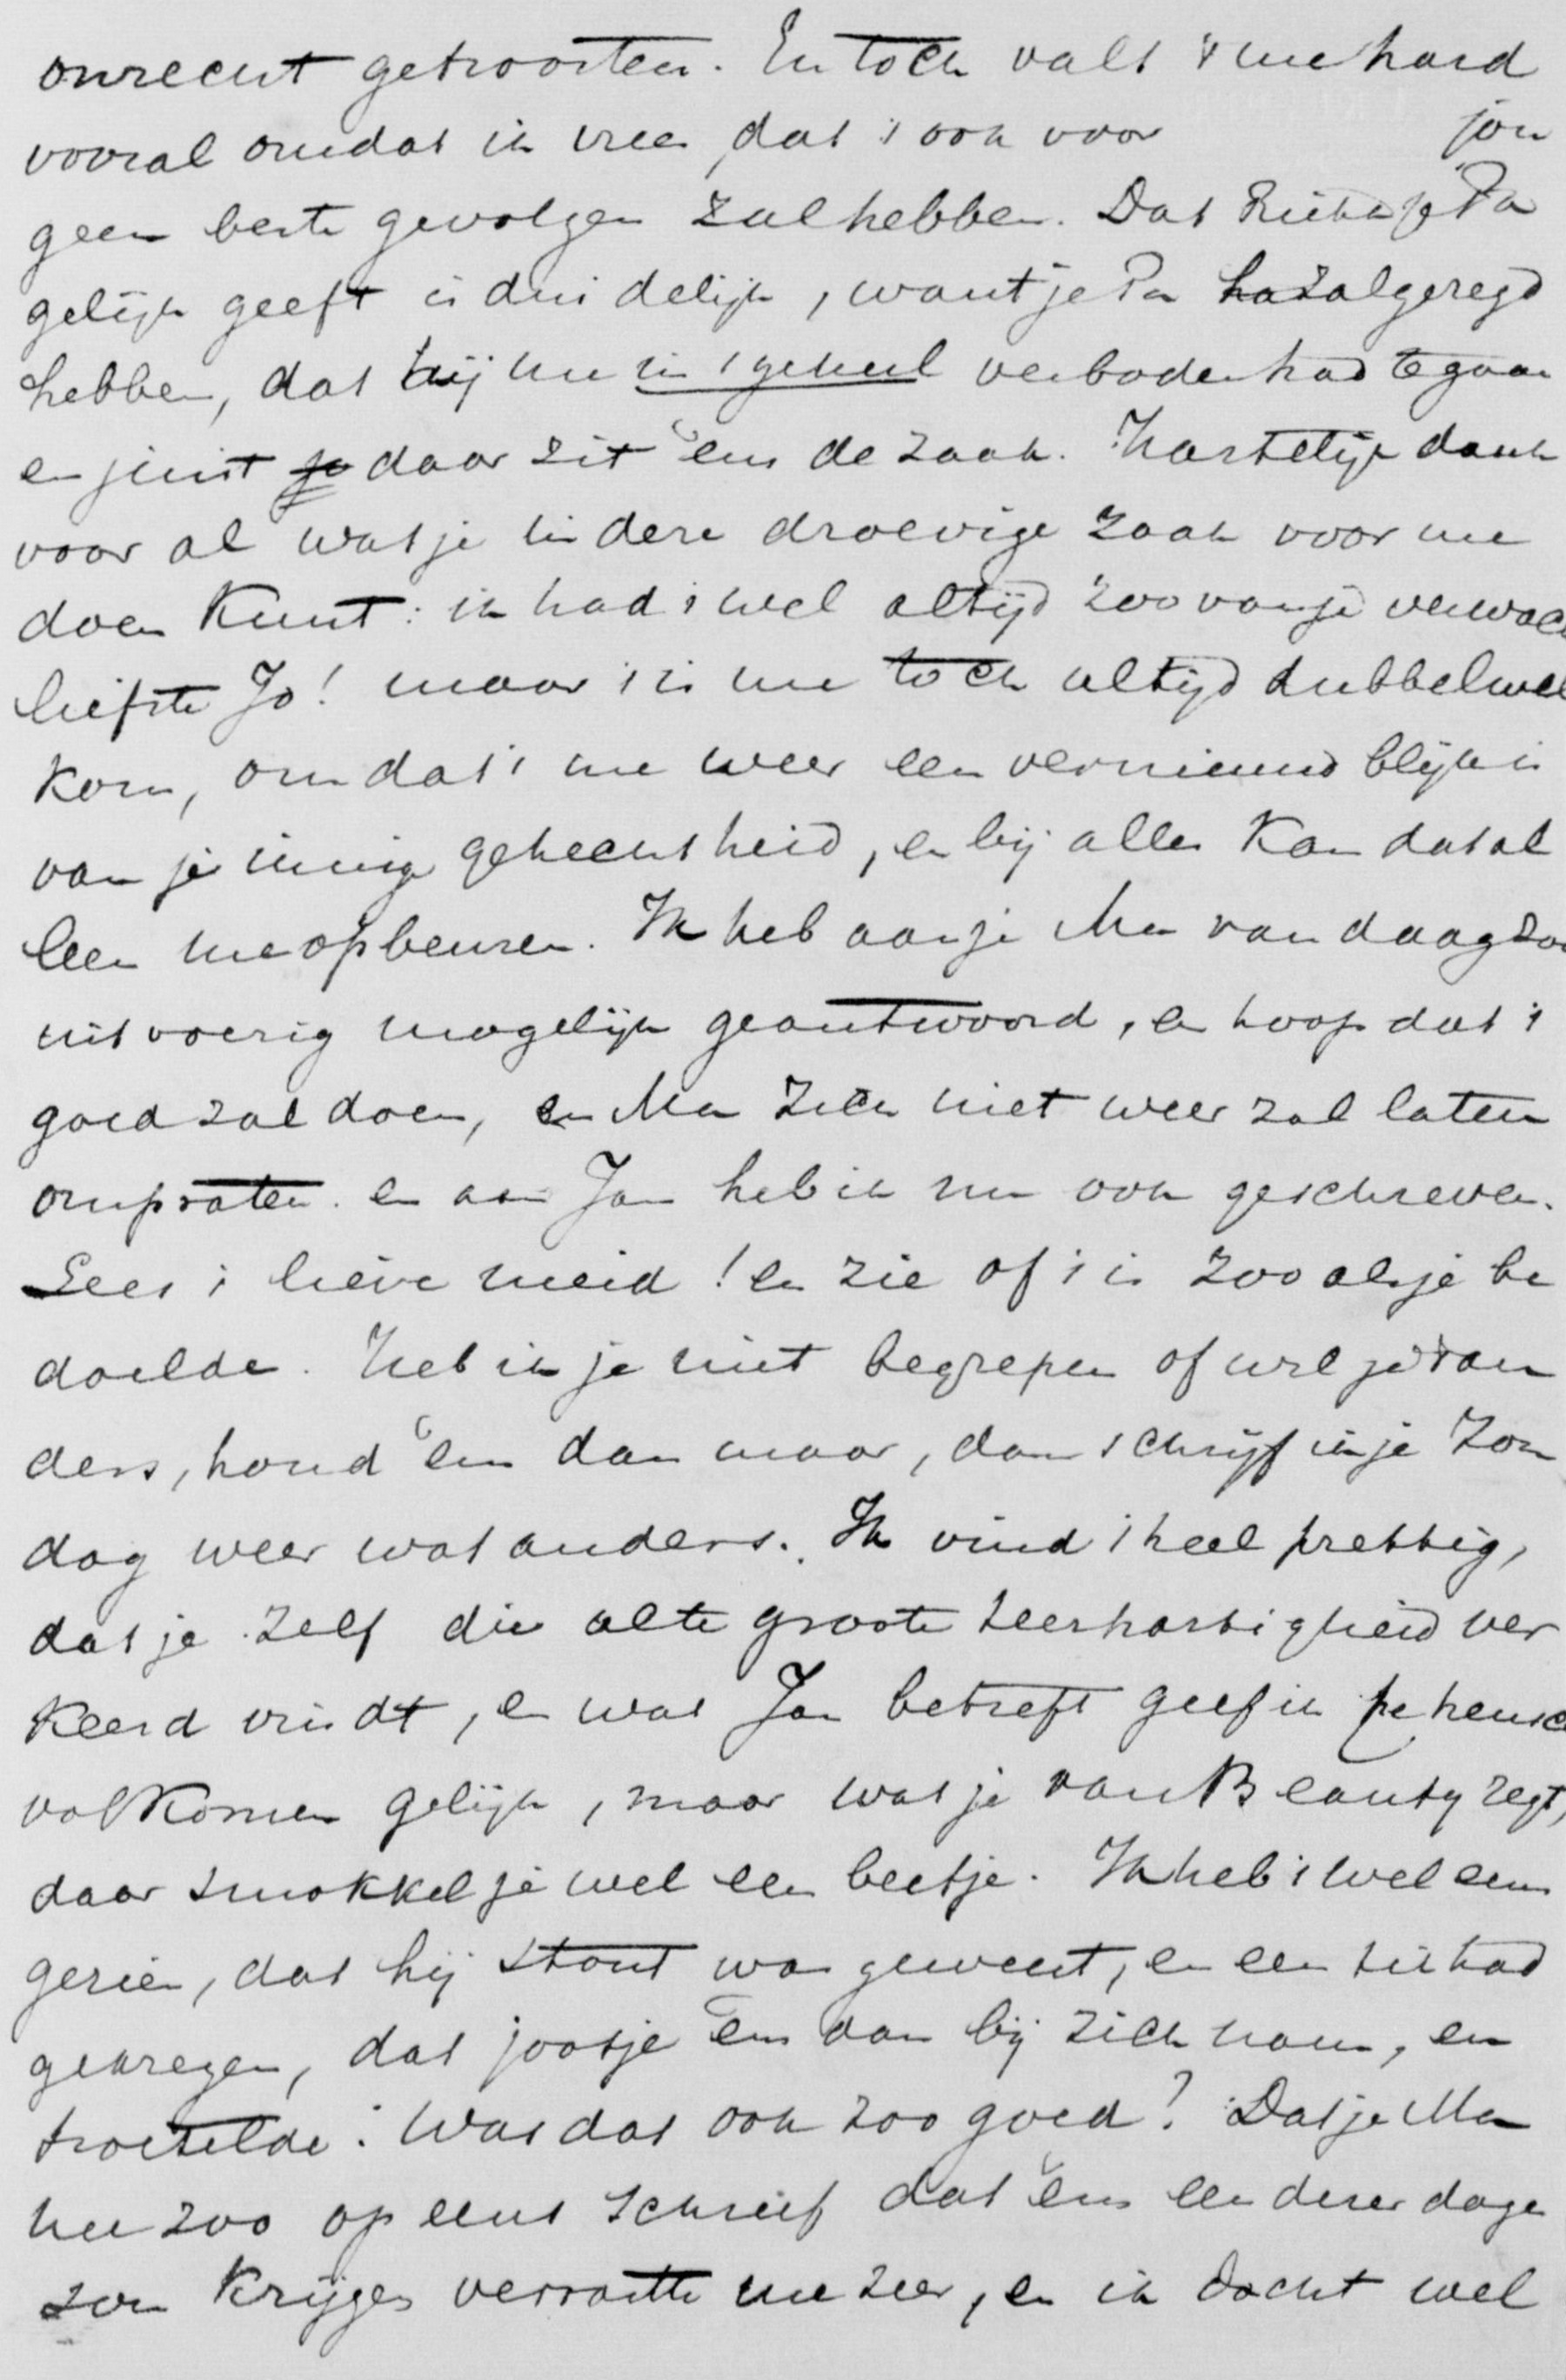 onrecht getroosten. En toch valt 't me hard
vooral omdat ik vrees, dat 't ook voor jou
geen beste gevolgen zal hebben. Dat je Pa
gelijk geeft is duidelijk, want je Pa ha zal gezegd
hebben, dat hij me in 't geheel verboden had te gaan
en juist je daar zit em de zaak. Hartelijk dank
voor al wat je in deze droevige zaak voor me
doen kunt: ik had 't wel altijd zoo van je verwach
liefste Jo! maar 't is me toch altijd dubbel wel
kom, omdat 't me weer een vernieuwd blijk is
van je innige gehechtheid, en bij alles kan dat al
leen me opbeuren. Ik heb aan je Ma vandaag zoo
uitvoerig mogelijk geantwoord, en hoop dat 't
goed zal doen, en Ma zich niet weer zal laten
ompraten. en aan Jan heb ik nu ook geschreven.
Lees 't lieve meid! en zie of 't is zooals je be
doelde. Heb ik je niet begrepen of wil je 't an
ders, houd em dan maar, dan schrijf ik je Zon
dag weer wat anders. Ik vind 't heel prettig,
dat je zelf die alte groote teerhartigheid ver
keerd vindt, en wat Jan betreft geef ik je heusch
volkomen gelijk, maar wat je van Beauty zegt,
daar smokkel je wel een beetje. Ik heb 't wel eens
gezien, dat hij stout was geweest, en een tik had
gekregen, dat Jootje em dan bij zich nam, en
troetelde: Was dat ook zoo goed? Dat je Ma
me zoo opeens schreef dat em een dezer dagen
zou krijgen verraste me zeer, en ik dacht wel